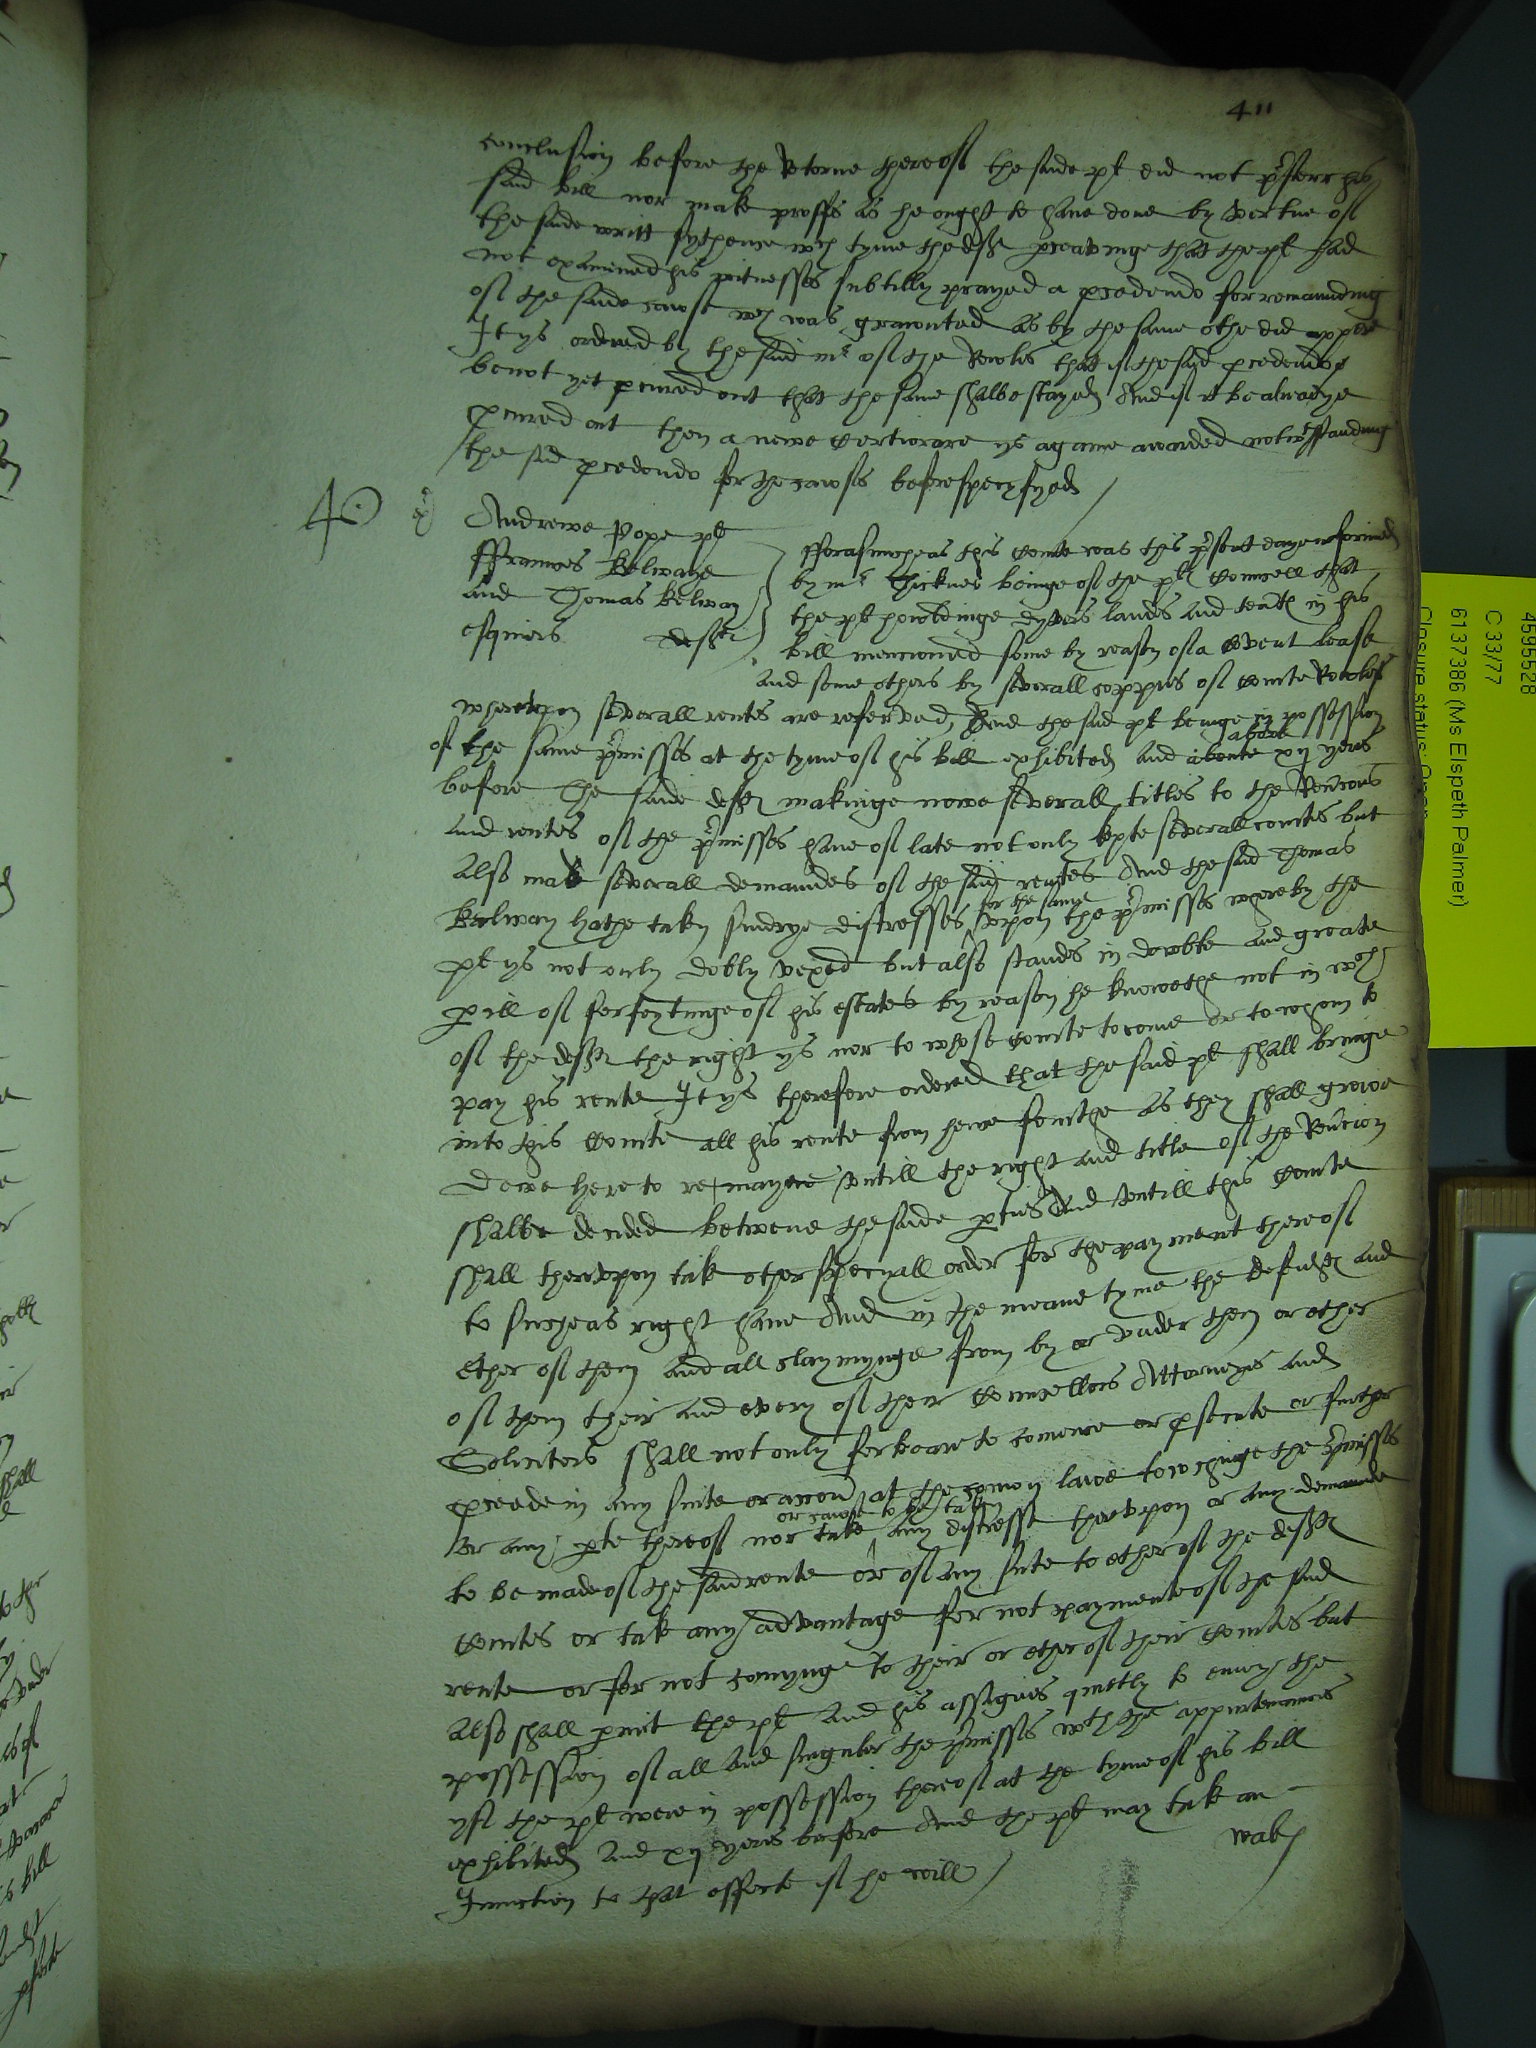 411
conclusion before the Retorne thereof the saide pl did not pferr his
said bill nor make proffs as he ought to have done by vertue of
the saide writt sythence wch tyme the deft pceavinge that the pl had
not examined his witnesses subtilly prayed a pcedendo for remaunding
of the saide cawse wch was graunted as by the same othe did appere
It ys ordred by the said mr of the Rowles that if the said pcedendo
be not yet pcured out that the same shalbe stayed And if it be alreadye
pcured out then a newe Certiorare ys againe awarded notwthstanding
the said pcedendo for the cawses before specyfyed
Andrewe Pope pl
ffraunces Kelwaye
and Thomas Kelway
esquiers deftes
fforasmuche as this Courte was this psent daye enformed
by mr Thicknes beinge of the pl Councell that
the pl howldinge dyvers landes and tents in his
bill mencioned some by reason of a Covent lease
and some others by severall coppies of Courte Rowles
whereupon severall rentes are reserved, And the said pl beinge in possession
of the same pmisses at the tyme of his bill exhibited and aboute xij yeres
above
before The saide defts makinge nowe severall titles to the Revercons
and rentes of the pmisses have of late not only kepte severall courtes but
also make severall demaundes of the said rentes And the said Thomas
Kelway hathe taken sundrye distresses upon the pmisses whereby the
for the same
pl ys not only dobly vexed but also standes in dowble and greate
perill of forfeytinge of his estates by reason he knowethe not in wch
of the defts the right ys nor to whose Courte to come or to whom to
pay his rente It ys therefore ordered that the said pl shall bringe
into this Courte all his rente from hence fourthe as they shall growe
dewe here to remayne untill the right and title of the Revercion
shalbe decided betwene the saide pties And untill this Courte
shall thereupon take other specyall order for the payment thereof
to suche as right have And in the meane tyme the defendts and
ether of them and all claymynge from by or under them or ether
of them their and every of their Councellors Attorneyes and
Soliciters shall not only forbeare to comence or psecute or further
pcede in any suite or accon at the comon lawe towchinge the pmisses
or any pte thereof nor take any distresse thereupon or any demaunde
or cawse to be taken
to be made of the said rente or of any sute to ether of the defts
Courtes or take any advantage for not paymente of the said
rente or for not comynge to their or ether of their Courtes but
also shall pmit the pl and his assignes quietly to enioy the
possession of all and singuler the pmisses wth the appurtenaunces
yf the pl were in possession thereof at the tyme of his bill
exhibited and xij yeres before And the pl may take an
Iniunction to that effecte if he will
4595528
C 33/77
6137386 (Ms Elspeth Palmer)
Closure status: Open